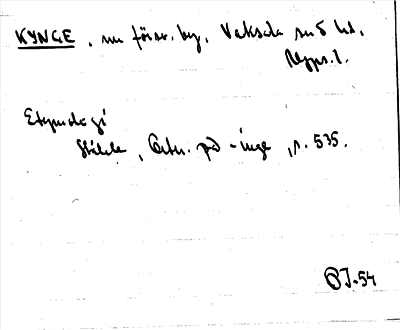 KYNGE, nu försv. by, Vaksala sn o hd,
Uppl.
Etymologi
Ståhle, Ortn. på -inge, s. 535.
BJ-54